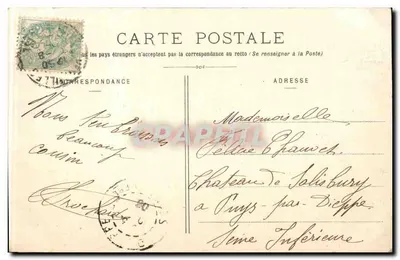 CARTE POSTALE
les pays étrangers n'acceptent pas la correspondance au recto (Se renseigner à la Poste)
CORRESPONDANCE
ADRESSE
Nous
beaucoup
cousin
Mademoiselle
Château de Salisbury
à Puys-par-Dieppe
Seine Inférieure